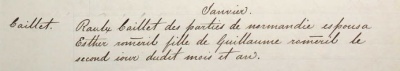 Janvier.
Caillet. Raulx Caillet des parties de normandie espousa
Esther roméril fille de Guillaume roméril le
second iour dudit mois et an.